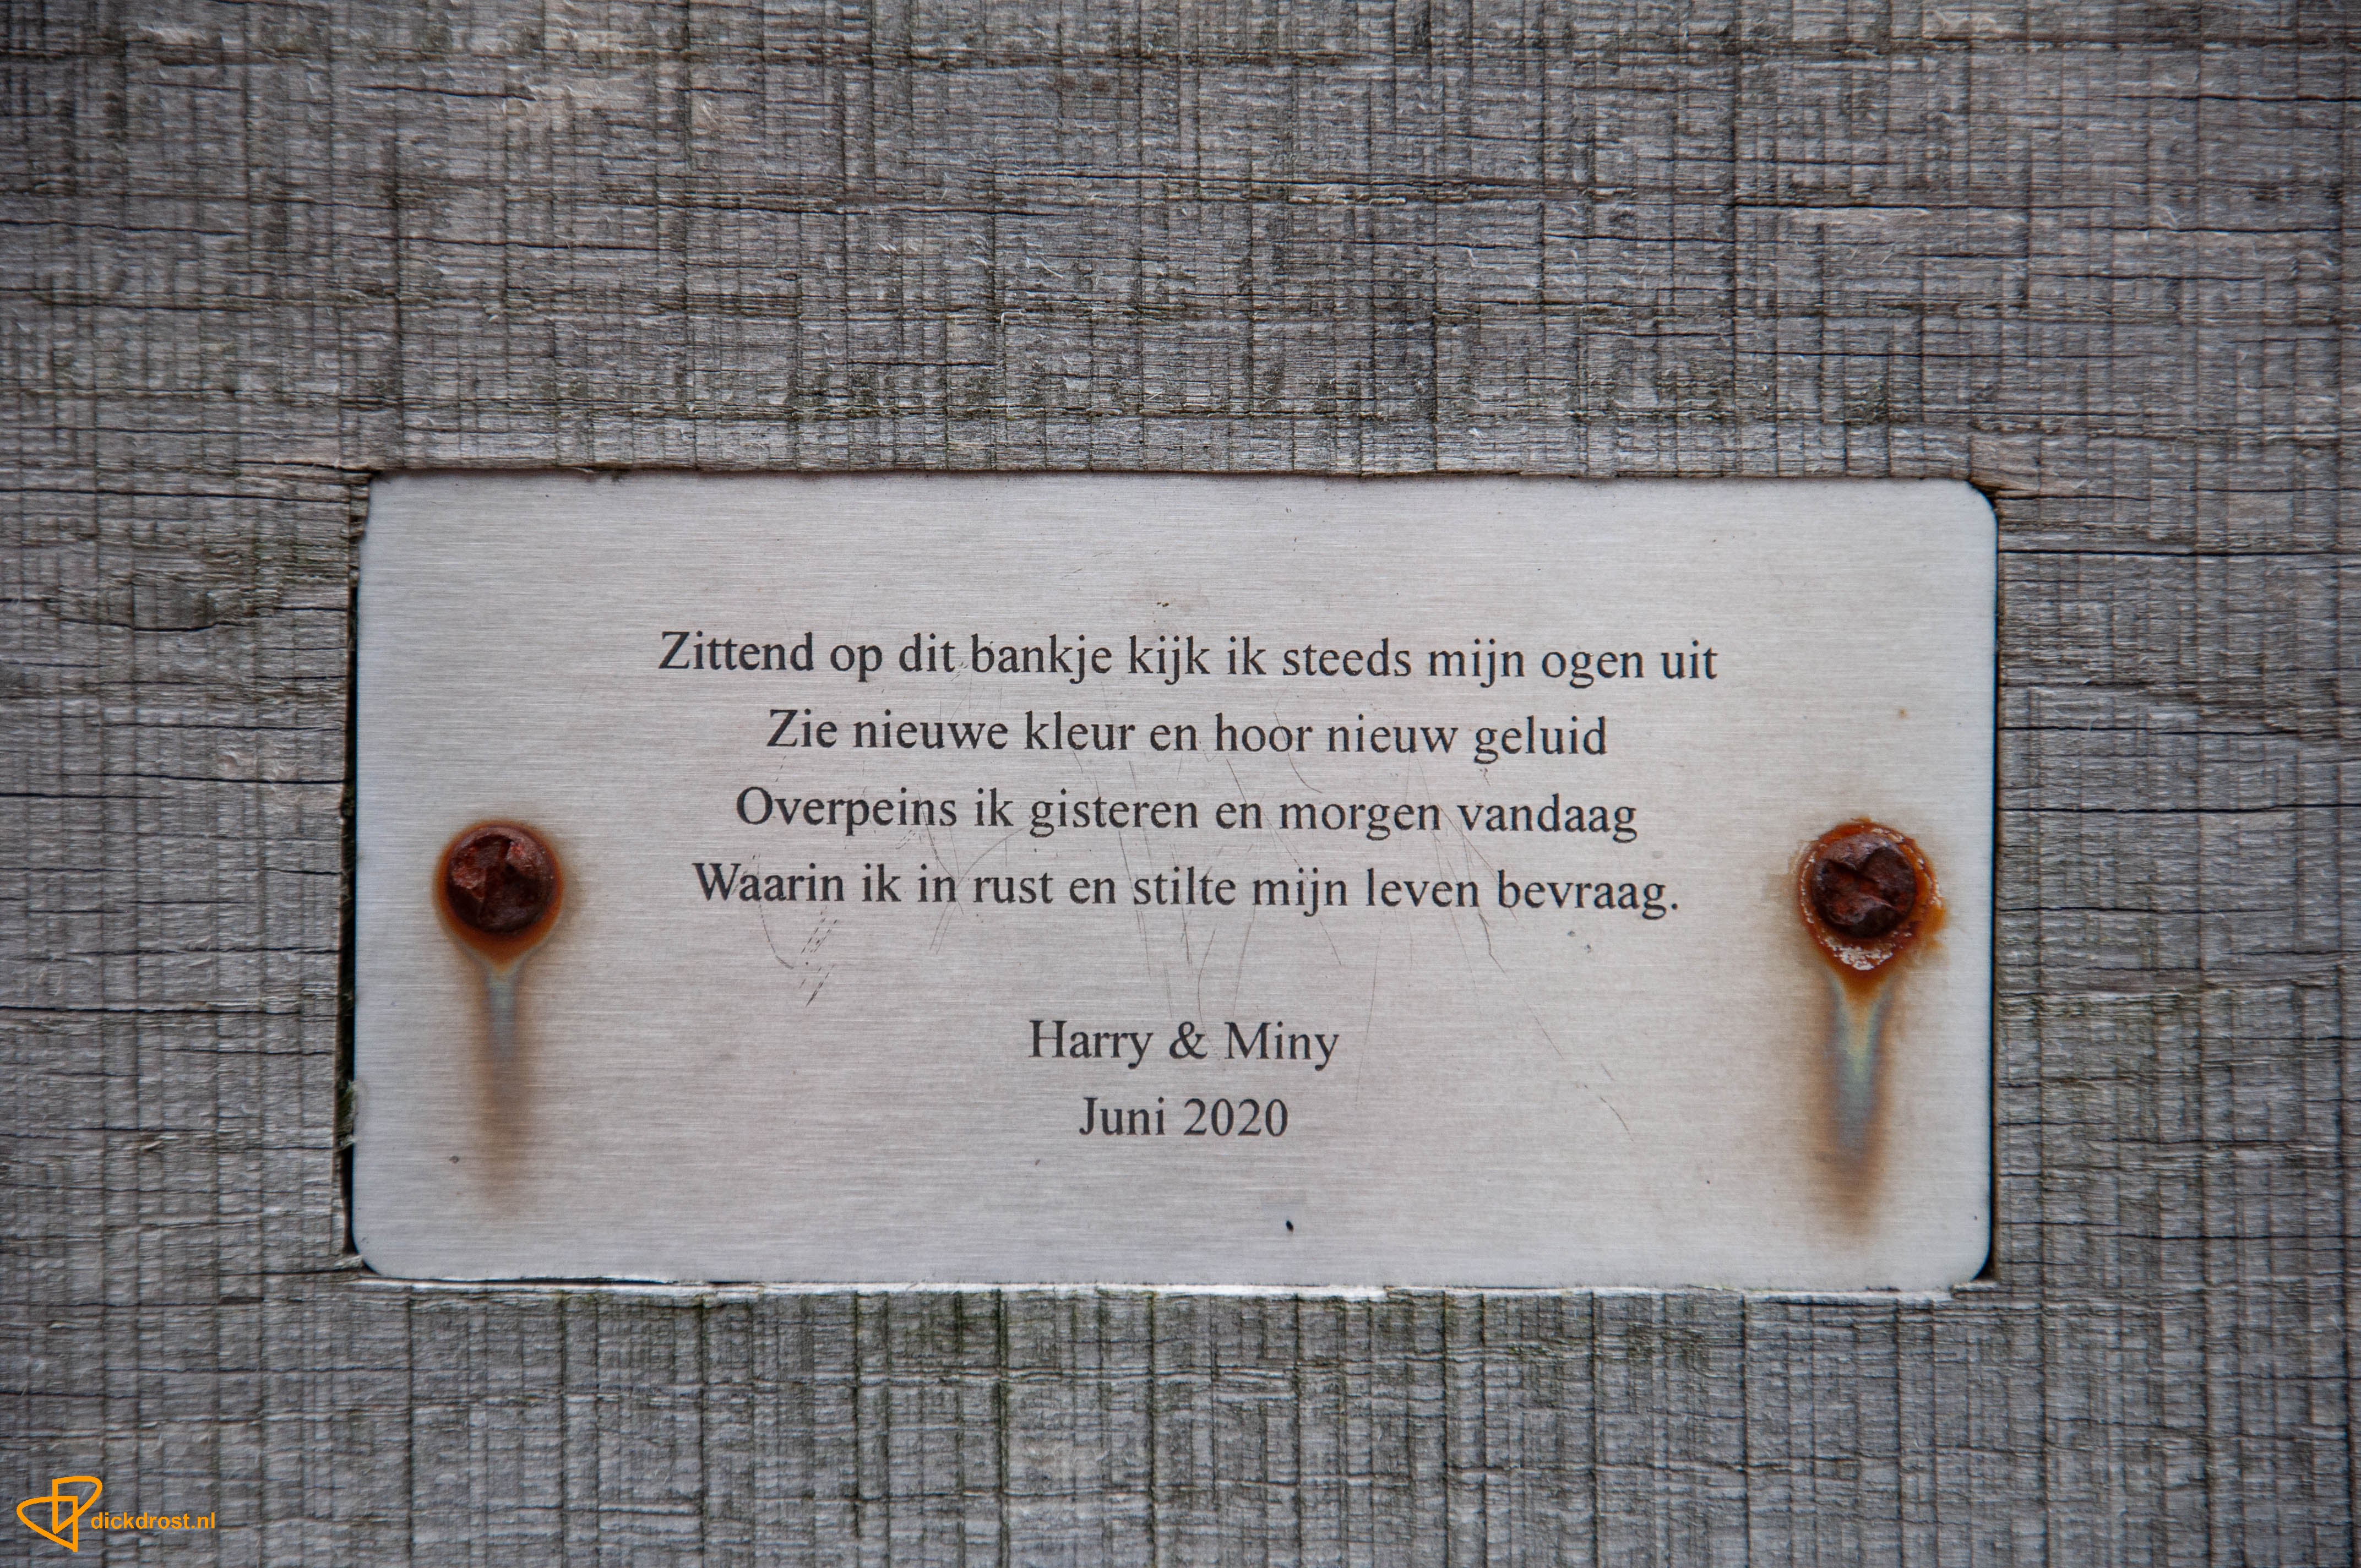 Zittend op dit bankje kijk ik steeds mijn ogen uit
Zie nieuwe kleur en hoor nieuw geluid
Overpeins ik gisteren en morgen vandaag
Waarin ik in rust en stilte mijn leven bevraag.
Harry & Miny
Juni 2020
dickdrost.nl